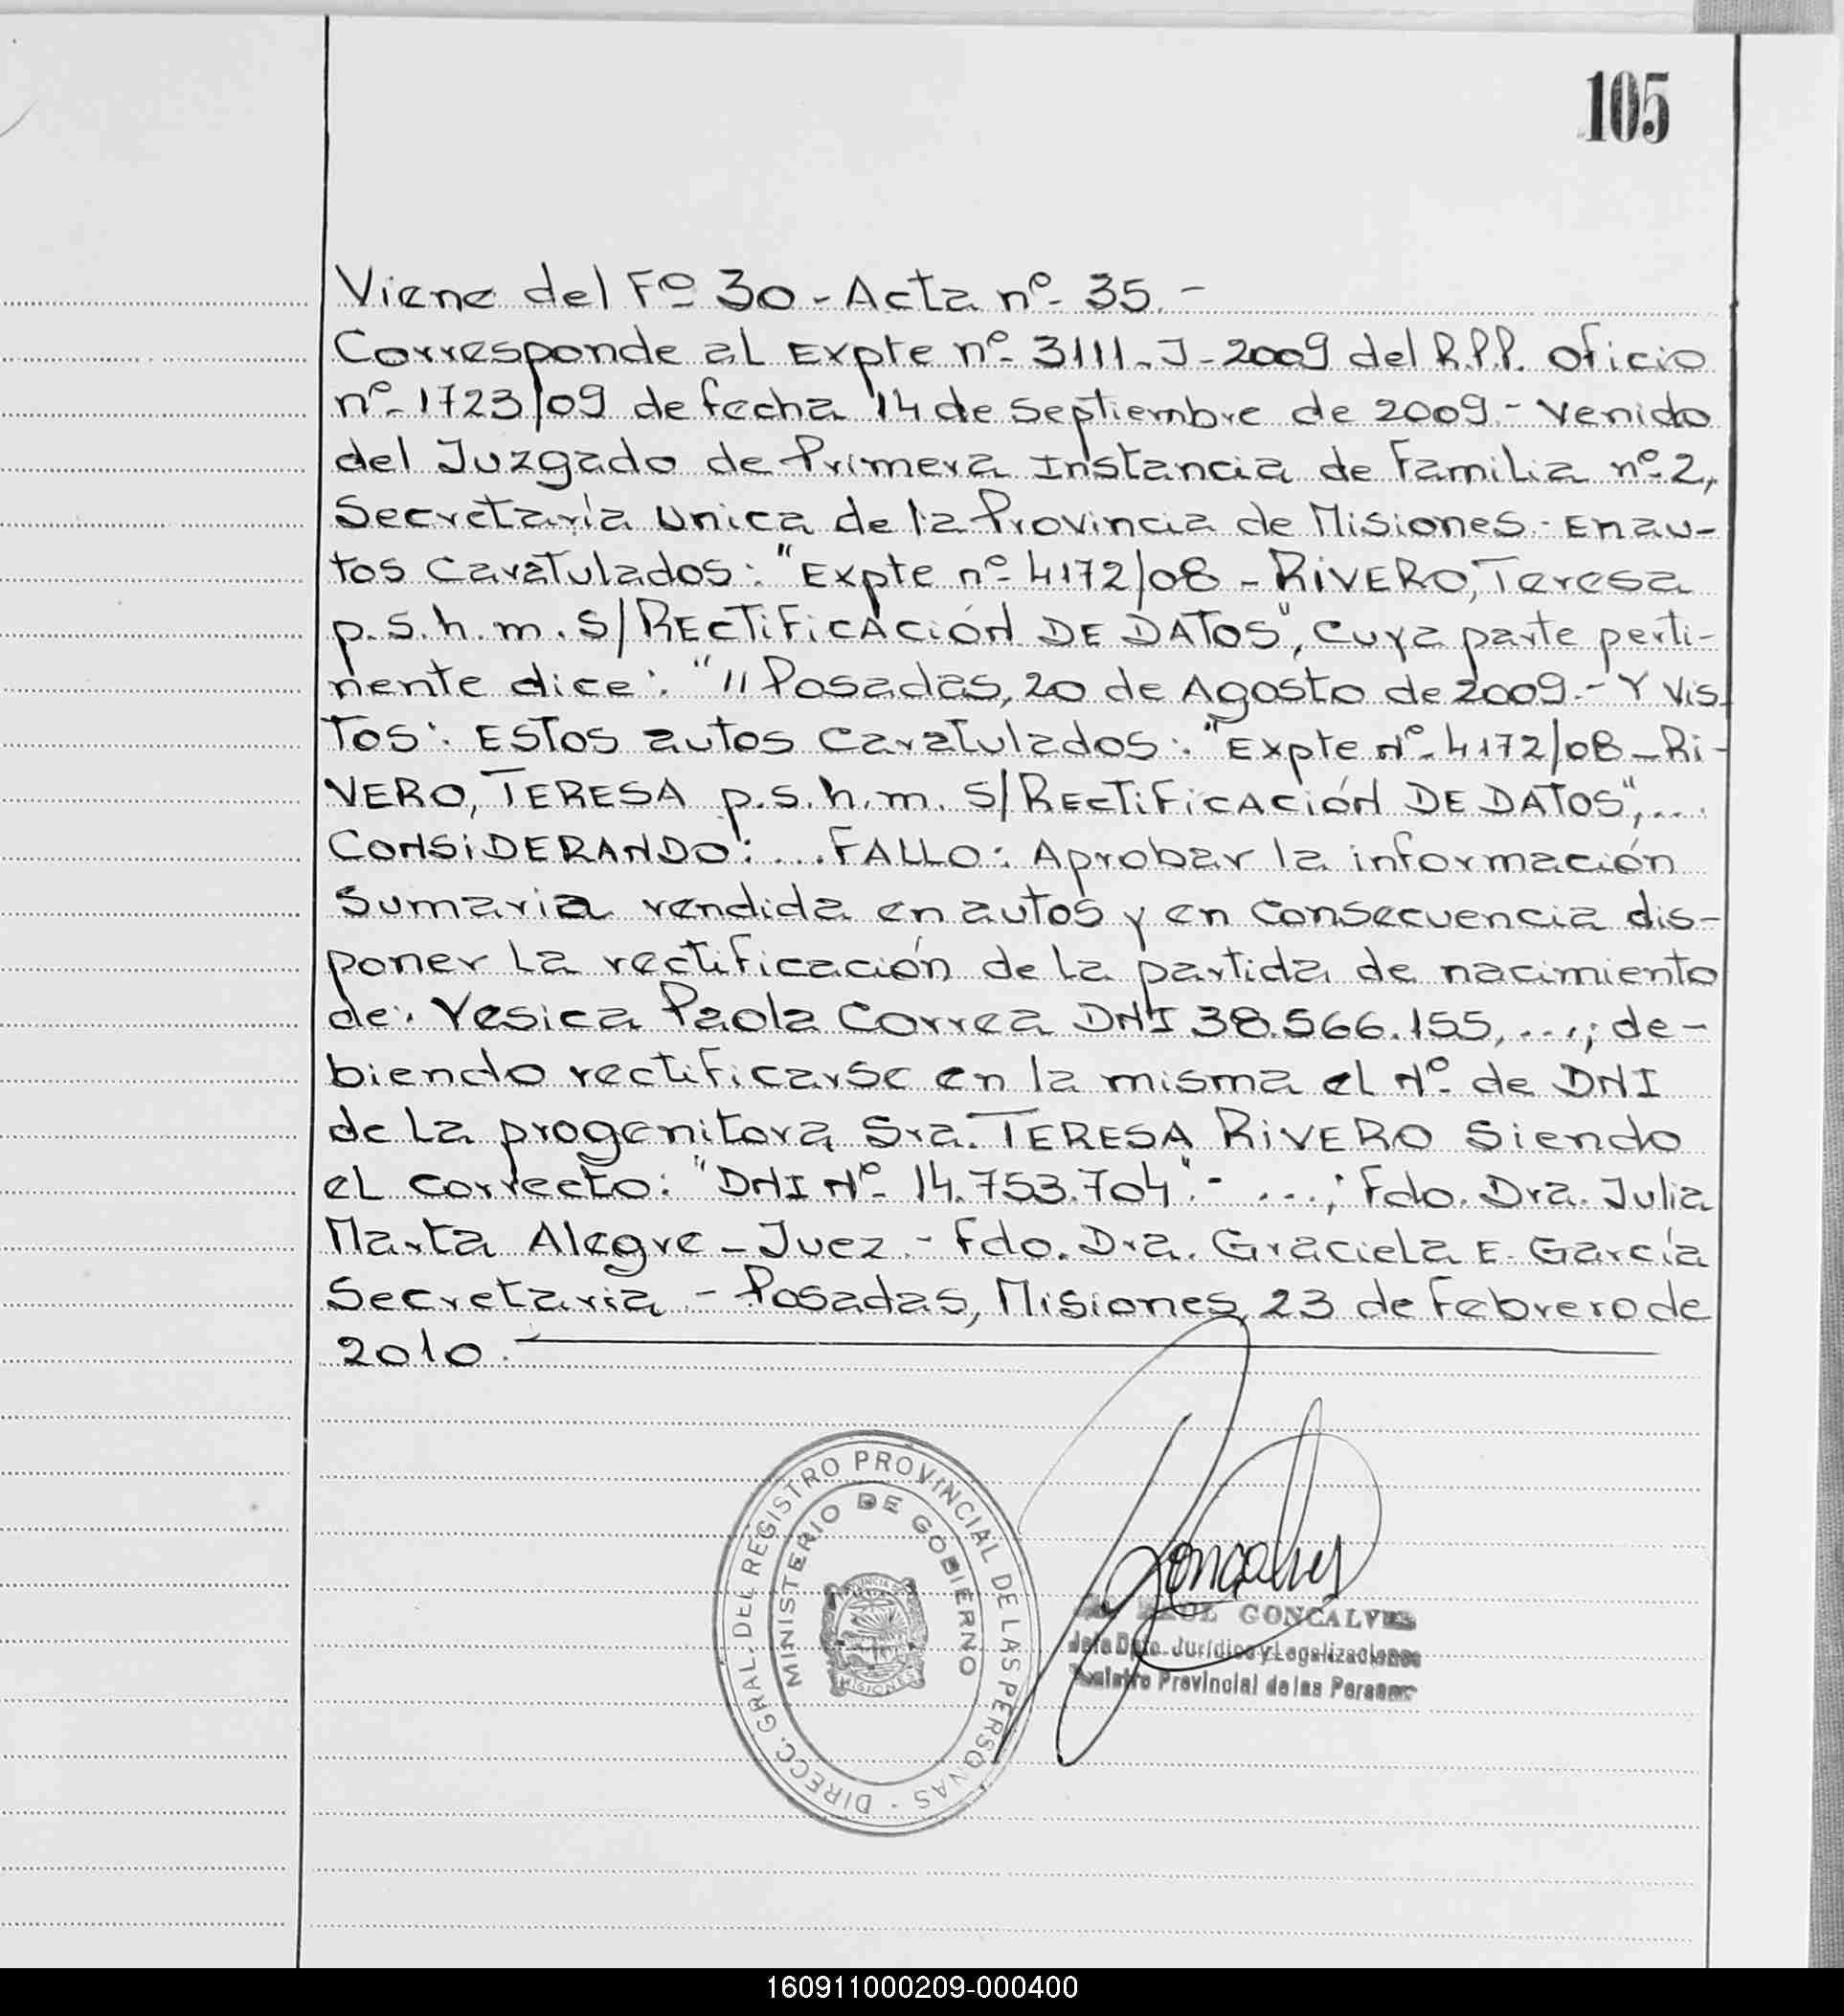 105
Viene del Fº 30 - Acta nº 35. -
Corresponde al Expte nº 3111-J-2009 del R.P.P. oficio
nº 1723/09 de fecha 14 de Septiembre de 2009.- Venido
del Juzgado de Primera Instancia de Familia nº 2,
Secretaría Unica de la Provincia de Misiones.- En au-
tos Caratulados: "Expte nº 4172/08 - RIVERO, Teresa
p.s.h.m. S/RECTIFICACIÓN DE DATOS", Cuya parte perti-
nente dice: "// Posadas, 20 de Agosto de 2009.- Y Vis
Tos: Estos autos Caratulados: "Expte Nº 4172/08 - Ri-
VERO, TERESA p.s.h.m. S/RECTIFICACIÓN DE DATOS", ...
CONSIDERANDO: ... FALLO: Aprobar la información
Sumaria rendida en autos y en Consecuencia dis-
poner la rectificación de la partida de nacimiento
de: Yesica Paola Correa DNI 38.566.155, ...; de-
biendo rectificarse en la misma el Nº de DNI
de la progenitora Sra. TERESA RIVERO Siendo
el correcto: "DNI Nº 14.753.704".- ...; Fdo. Dra. Julia
Marta Alegre - Juez.- Fdo. Dra. Graciela E. García
Secretaria - Posadas, Misiones, 23 de Febrero de
2010.
DIRECC. GRAL. DEL REGISTRO PROVINCIAL DE LAS PERSONAS
MINISTERIO DE GOBIERNO
MISIONES
Goncalves
GONCALVES
Jefe Dpto. Jurídico y Legalizaciones
Registro Provincial de las Personas
160911000209-000400